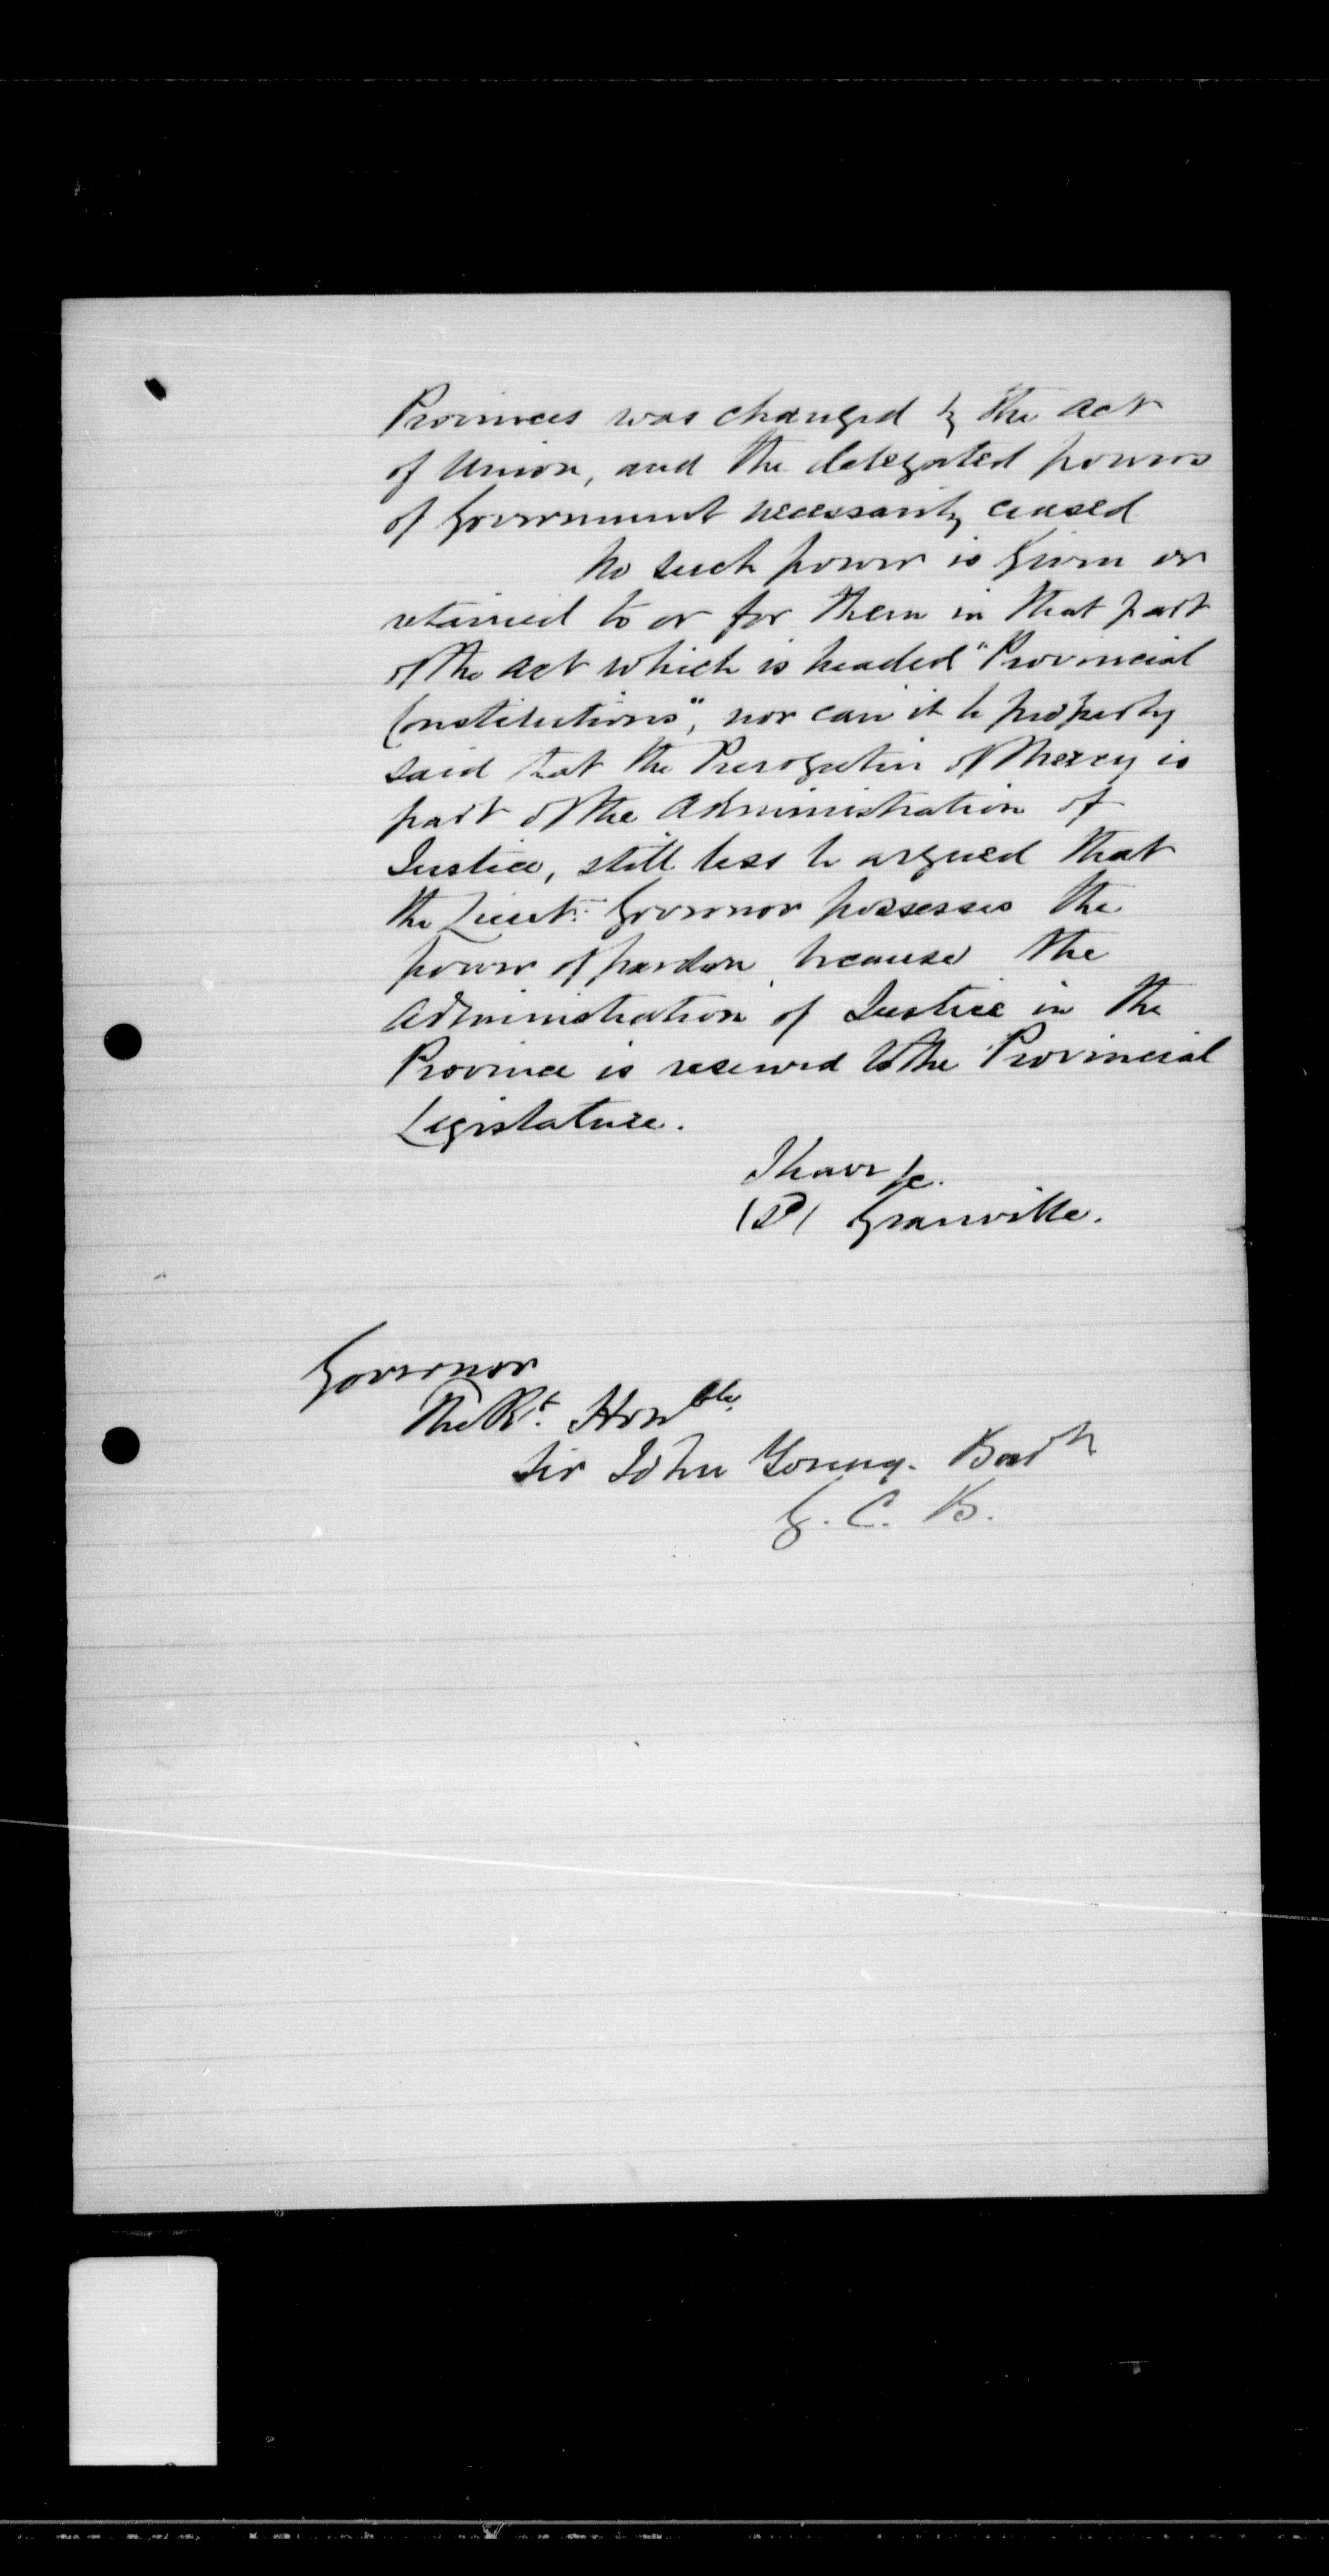 Provinces was changed by the act
of Union, and the delegated powers
of Government necessarily ceased
No such power is given or
retained to or for them in that part
of the act which is headed "Provincial
Constitutions", nor can it be properly
said that the Prerogative of Mercy is
part of the Administration of
Justice, still less be argued that
the Lieut: Governor possesses the
power of pardon, because the
Administration of Justice in the
Province is reserved to the Provincial
Legislature.
I have &c.
(sd) Granville.
Governor
The Rt. Honble.
Sir John Young. Bart
G. C. B.